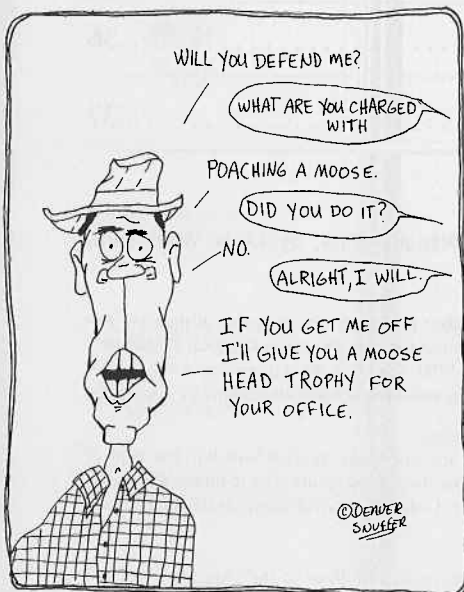 WILL YOU DEFEND ME?
WHAT ARE YOU CHARGED
WITH
POACHING A MOOSE.
DID YOU DO IT?
NO.
ALRIGHT, I WILL.
IF YOU GET ME OFF
I'LL GIVE YOU A MOOSE
HEAD TROPHY FOR
YOUR OFFICE.
©DENVER
SNUFFER